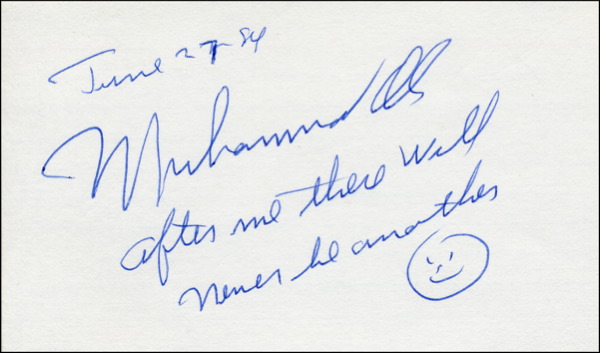 June 27 84
Muhammad Ali
after me there will
never be another